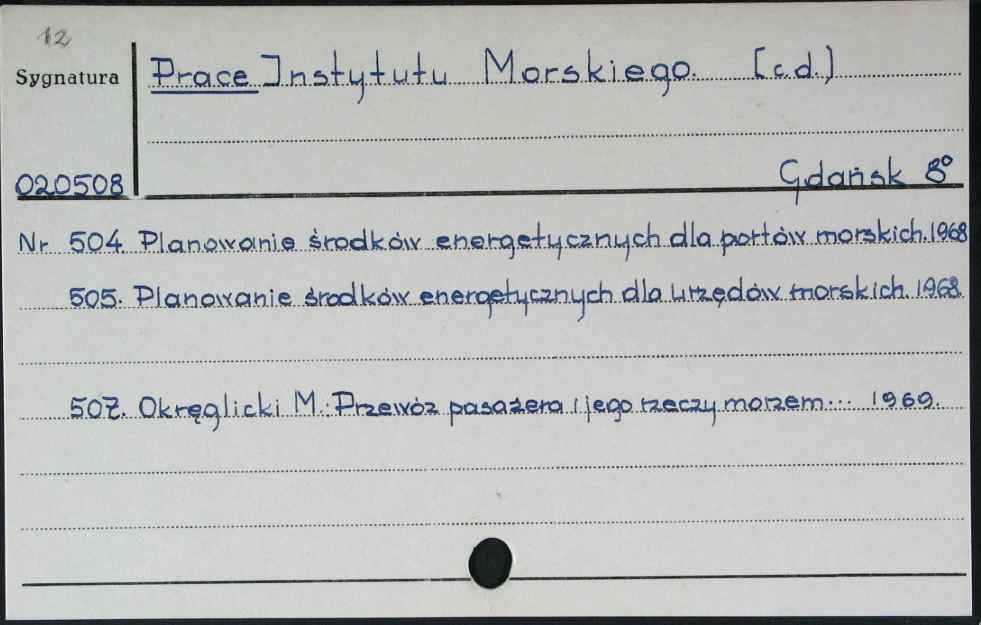 12
Sygnatura
Prace Instytutu Morskiego. [c.d.)
020508
Gdańsk 8°
Nr 504. Planowanie środków energetycznych dla portów morskich. 1968
505. Planowanie środków energetycznych dla urzędów morskich. 1968.
507. Okręglicki M.: Przewóz pasażera i jego rzeczy morzem... 1969.